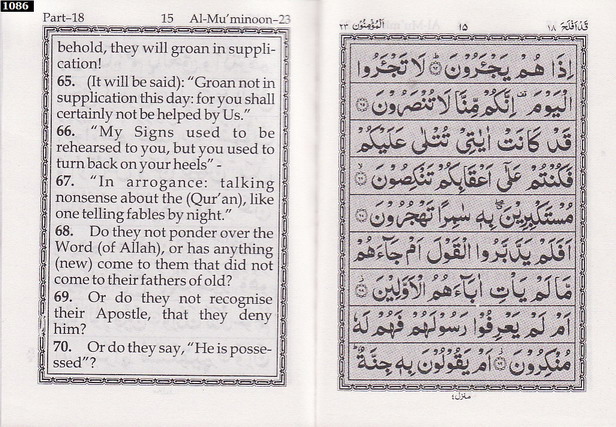 1086
Part–18 15 Al-Mu'minoon–23
behold, they will groan in suppli-
cation!
65. (It will be said): "Groan not in
supplication this day: for you shall
certainly not be helped by Us."
66. "My Signs used to be
rehearsed to you, but you used to
turn back on your heels" -
67. "In arrogance: talking
nonsense about the (Qur'an), like
one telling fables by night."
68. Do they not ponder over the
Word (of Allah), or has anything
(new) come to them that did not
come to their fathers of old?
69. Or do they not recognise
their Apostle, that they deny
him?
70. Or do they say, "He is posse-
ssed"?
قَدْ اَفْلَحَ ۱۸ ۱۵ اَلْمُؤْمِنُوْن ۲۳
اِذَا هُمْ يَجْـَٔرُوْنَ ۞ لَا تَجْـَٔرُوا
الْيَوْمَ ۫ اِنَّكُمْ مِّنَّا لَا تُنْصَرُوْنَ ۞
قَدْ كَانَتْ اٰيٰتِيْ تُتْلٰى عَلَيْكُمْ
فَكُنْتُمْ عَلٰٓى اَعْقَابِكُمْ تَنْكِصُوْنَ ۞
مُسْتَكْبِرِيْنَ ۖ بِهٖ سٰمِرًا تَهْجُرُوْنَ ۞
اَفَلَمْ يَدَّبَّرُوا الْقَوْلَ اَمْ جَآءَهُمْ
مَّا لَمْ يَاْتِ اٰبَآءَهُمُ الْاَوَّلِيْنَ ۞
اَمْ لَمْ يَعْرِفُوْا رَسُوْلَهُمْ فَهُمْ لَهٗ
مُنْكِرُوْنَ ۞ اَمْ يَقُوْلُوْنَ بِهٖ جِنَّةٌ ؕ
منزل ۴